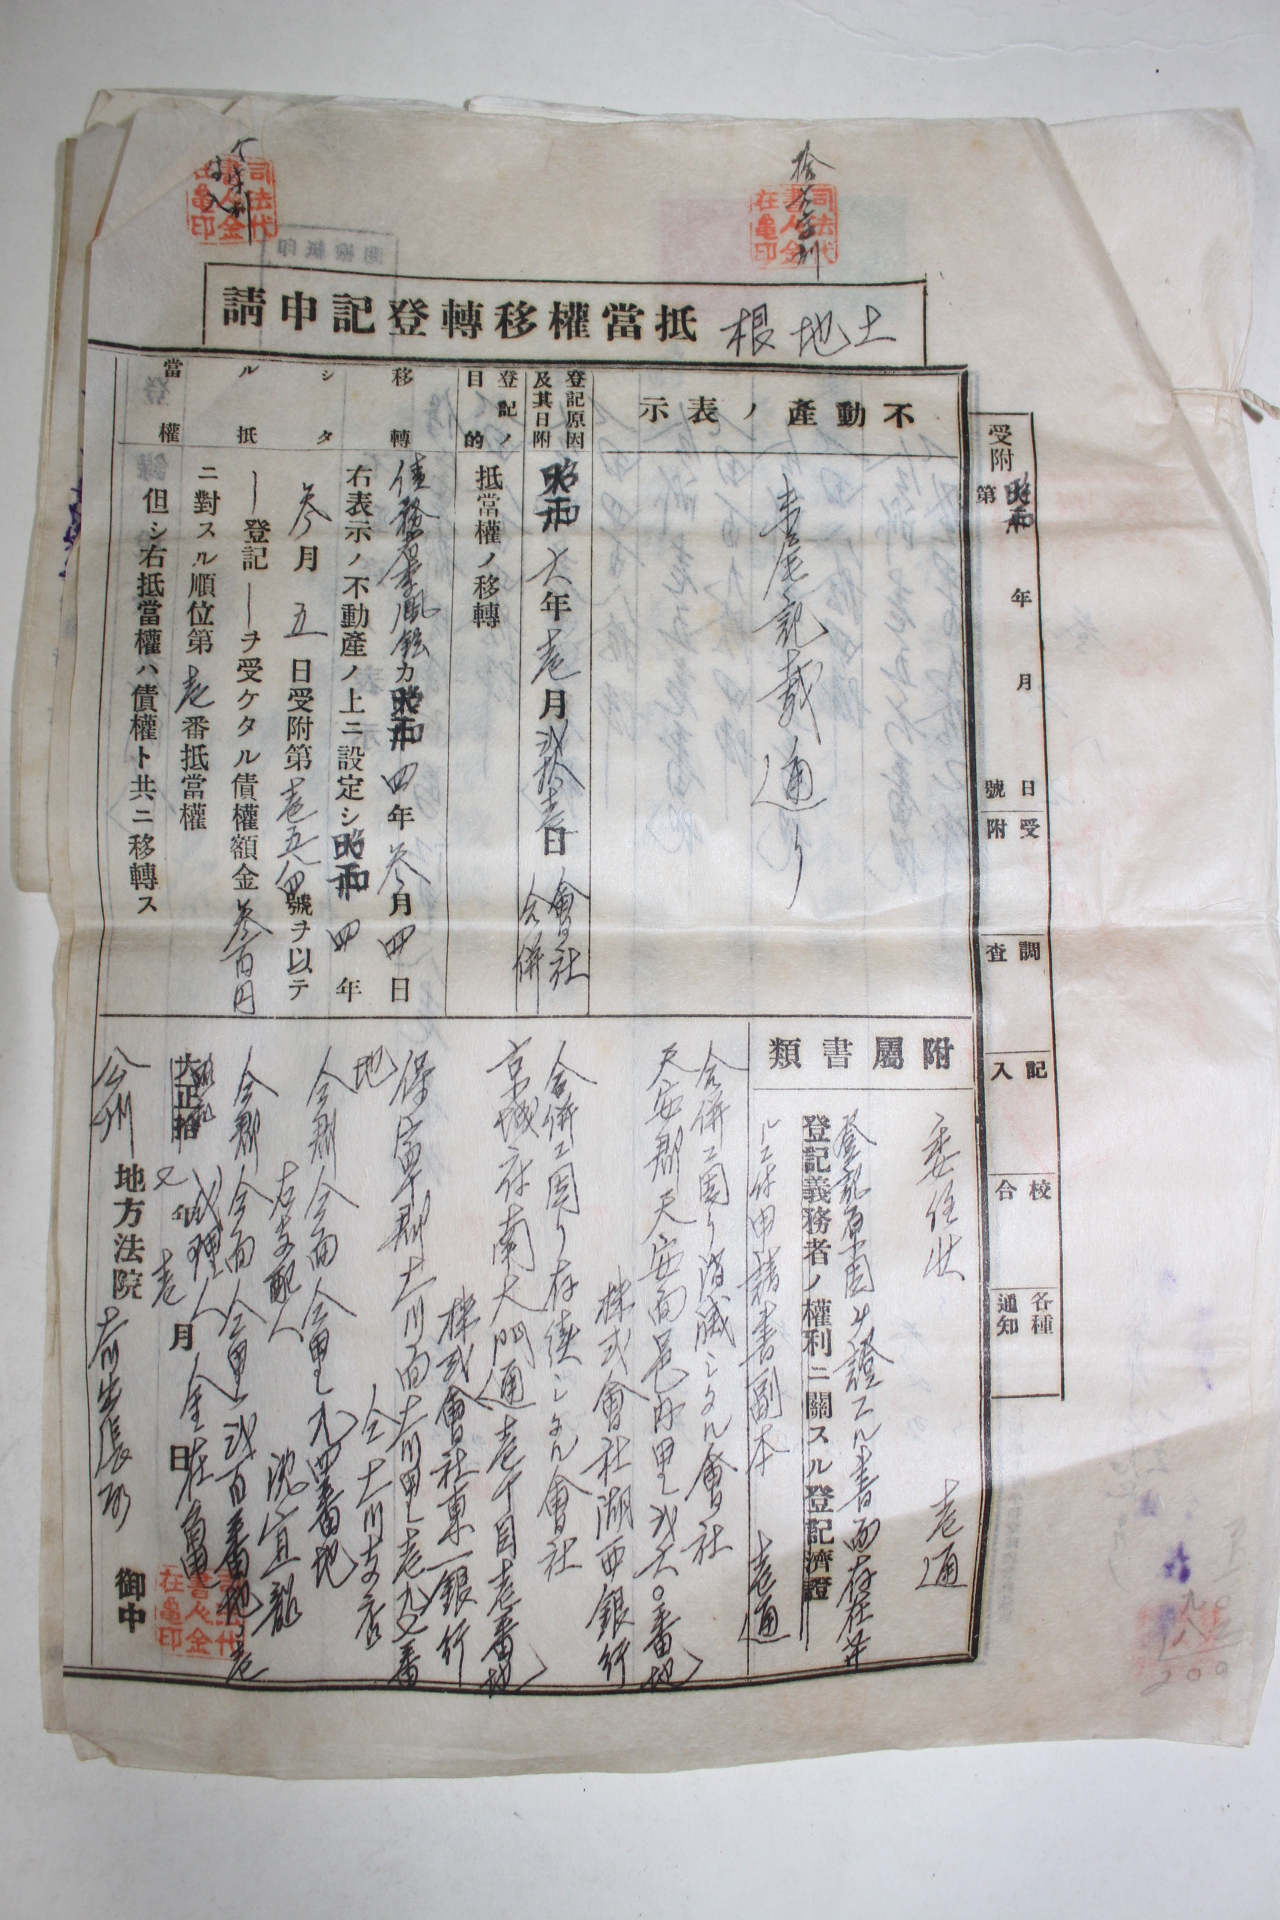 土地根抵當權移轉登記申請
受附
昭和 年 月 日
第 號
受附
調査
記入
校合
各種通知
不動產ノ表示
末尾記載通リ
登記原因及其日附
昭和六年壱月弐拾壱日會社合併
登記ノ目的
抵當權ノ移轉
移轉シタル抵當權
債務者李鳳鉉カ昭和四年參月四日
右表示ノ不動產ノ上ニ設定シ昭和四年
參月五日受附第壱五八四號ヲ以テ
登記ヲ受ケタル債權額金參百円
ニ對スル順位第壱番抵當權
但シ右抵當權ハ債權ト共ニ移轉ス
附屬書類
委任狀 壱通
登記原因ヲ證スル書面存在セサ
登記義務者ノ權利ニ關スル登記濟證
ルニ付申請書副本 壱通
合併ニ因リ消滅シタル會社
天安郡天安面邑內里弐六〇番地
株式會社湖西銀行
合併ニ因リ存續シタル會社
京城府南大門通壱丁目壱番地
株式會社東一銀行
保寧郡大川面大川里壱九七番
地
仝大川支店
仝郡仝面仝里九四番地
右支配人 沈宜韶
仝郡仝面仝里弐百壱番地ノ壱
代理人 金在龜
大正拾
昭和七年壱月 日
公州地方法院大川出張所 御中
司法代書人金在龜印
司法代書人金在龜印
司法代書人金在龜印